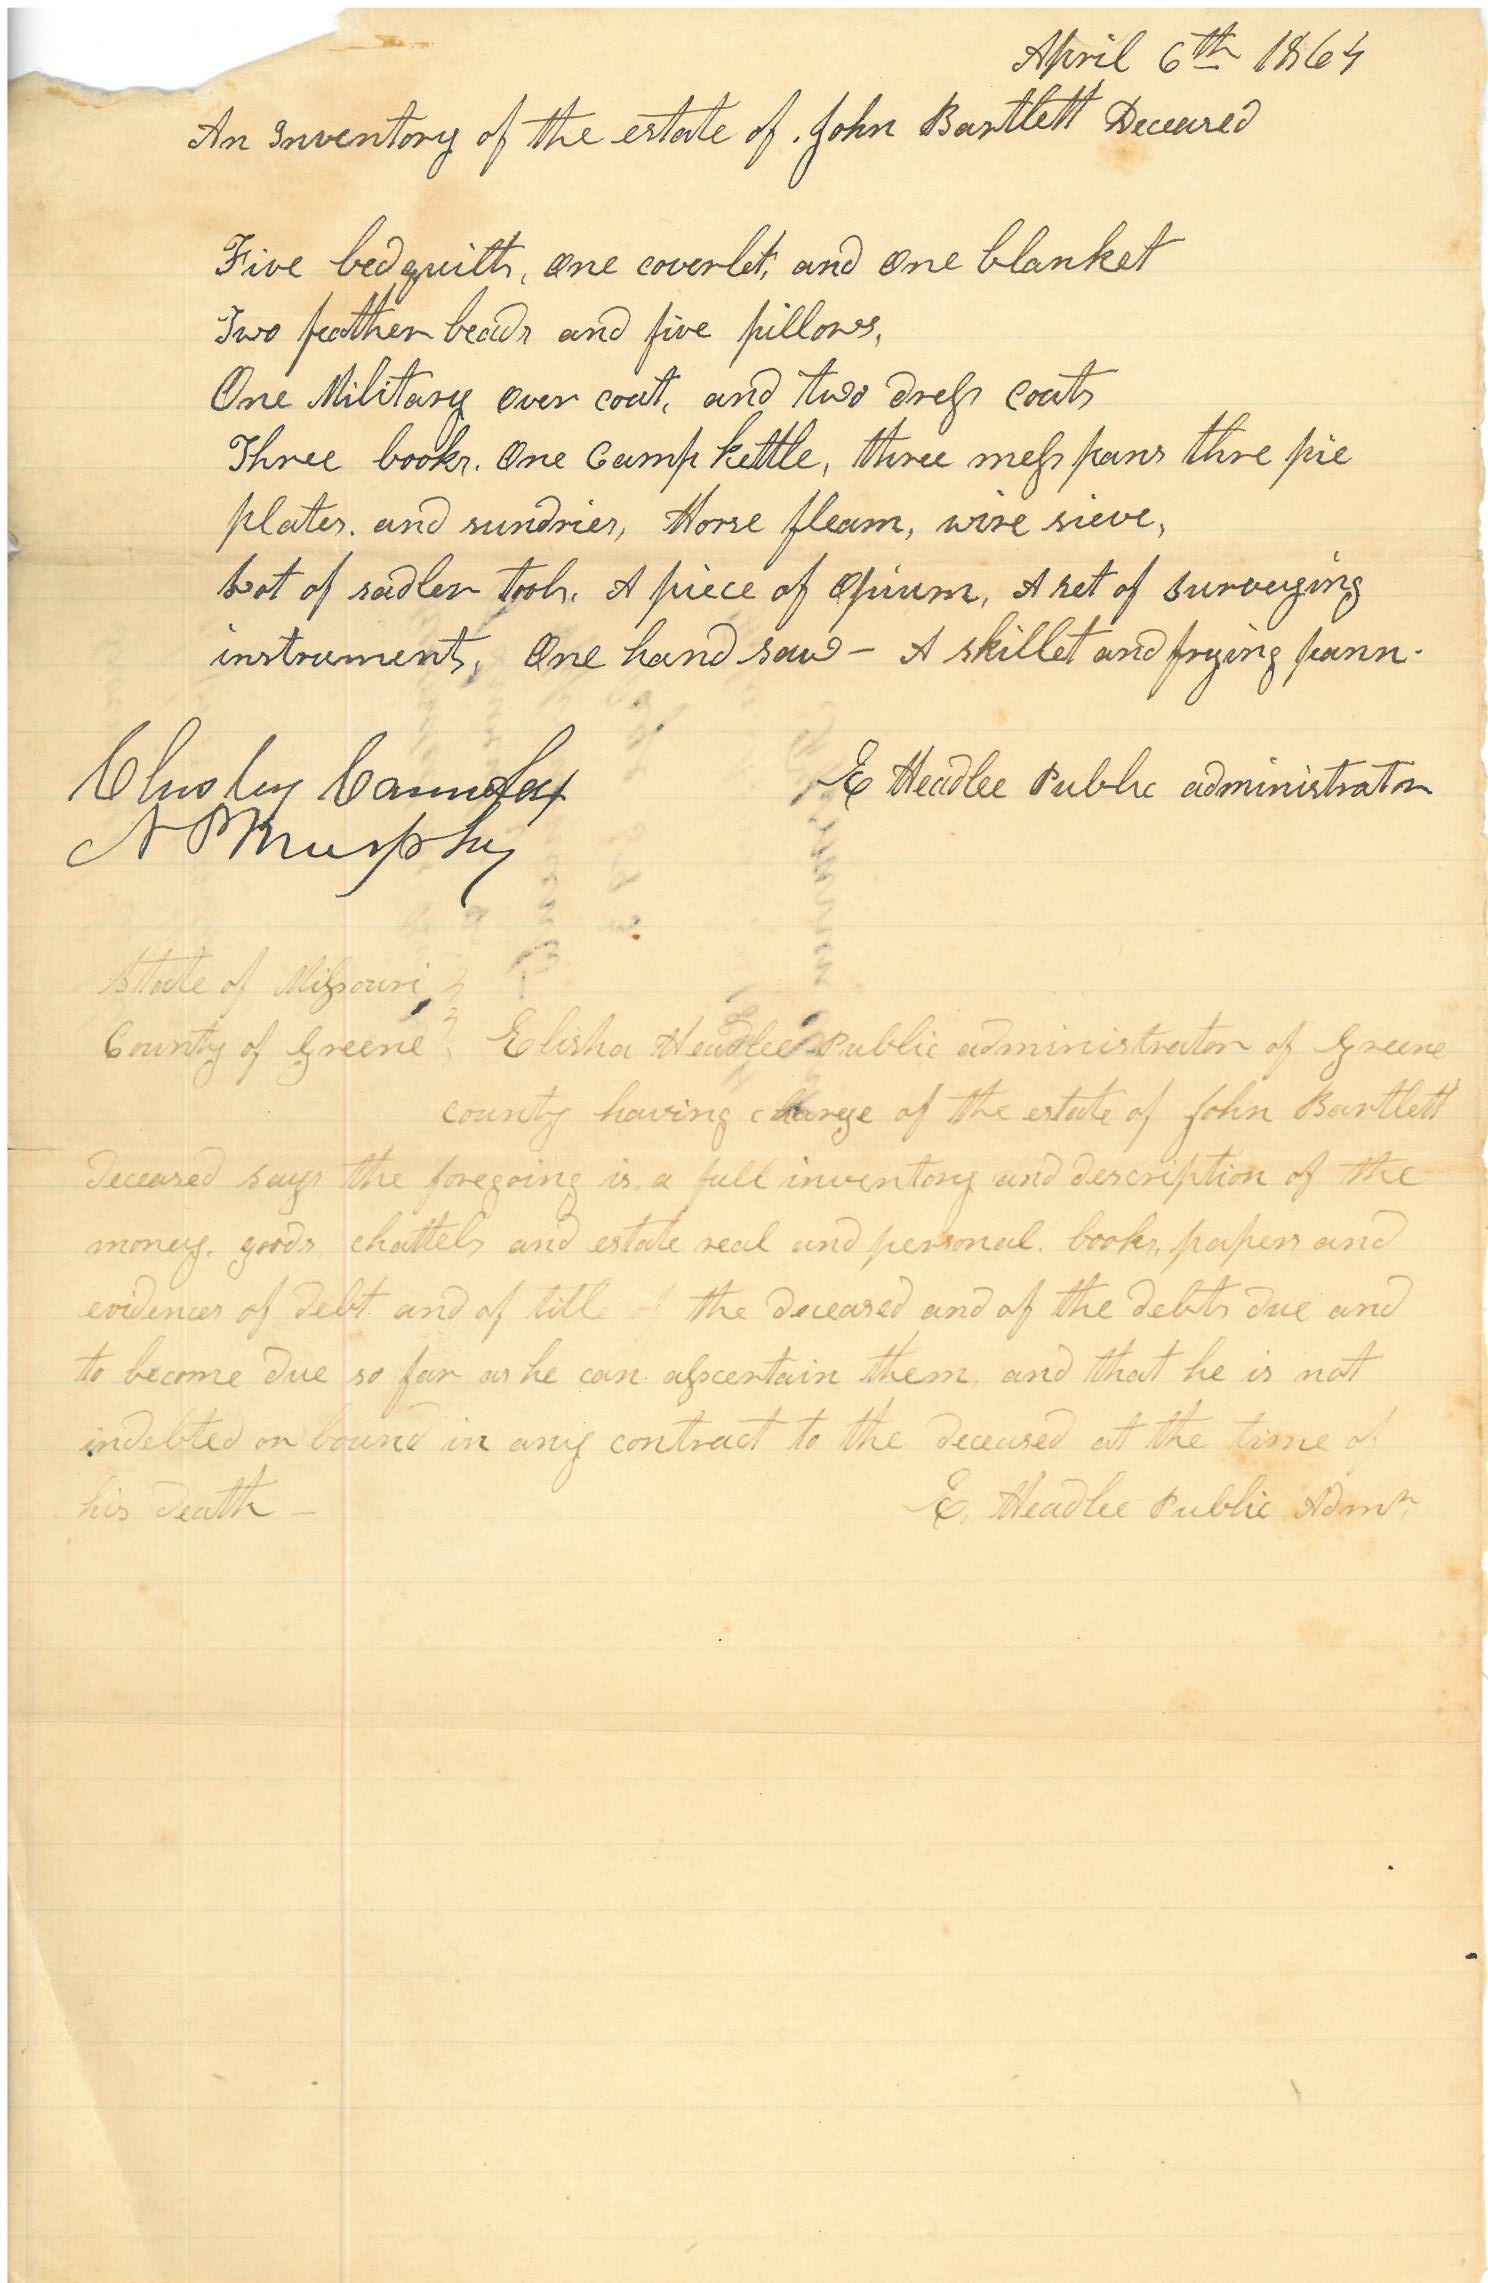 April 6th 1864
An Inventory of the estate of John Bartlett Deceased
Five bedquilts, One coverlet, and One blanket
Two feather beads and five pillows,
One Military over coat, and two dress coats
Three books. One Camp kettle, three mess pans thre pie
plates. and sundries, Horse fleam, wire sieve,
Lot of sadler tools. A piece of Opium, A set of surveying
instruments, One hand saw – A skillet and frying pann.
E Headlee Public administrator
Murphy
State of Missouri
County of Greene Elisha Headlee Public administrator of Greene
county having charge of the estate of John Bartlett
deceased says the foregoing is a full inventory and description of the
money. goods chattels and estate real and personal. books, papers and
evidences of debt and of title of the deceased and of the debts due and
to become due so far as he can asscertain them, and that he is not
indebted or bound in any contract to the deceased at the time of
his death –
E. Headlee Public Admr.